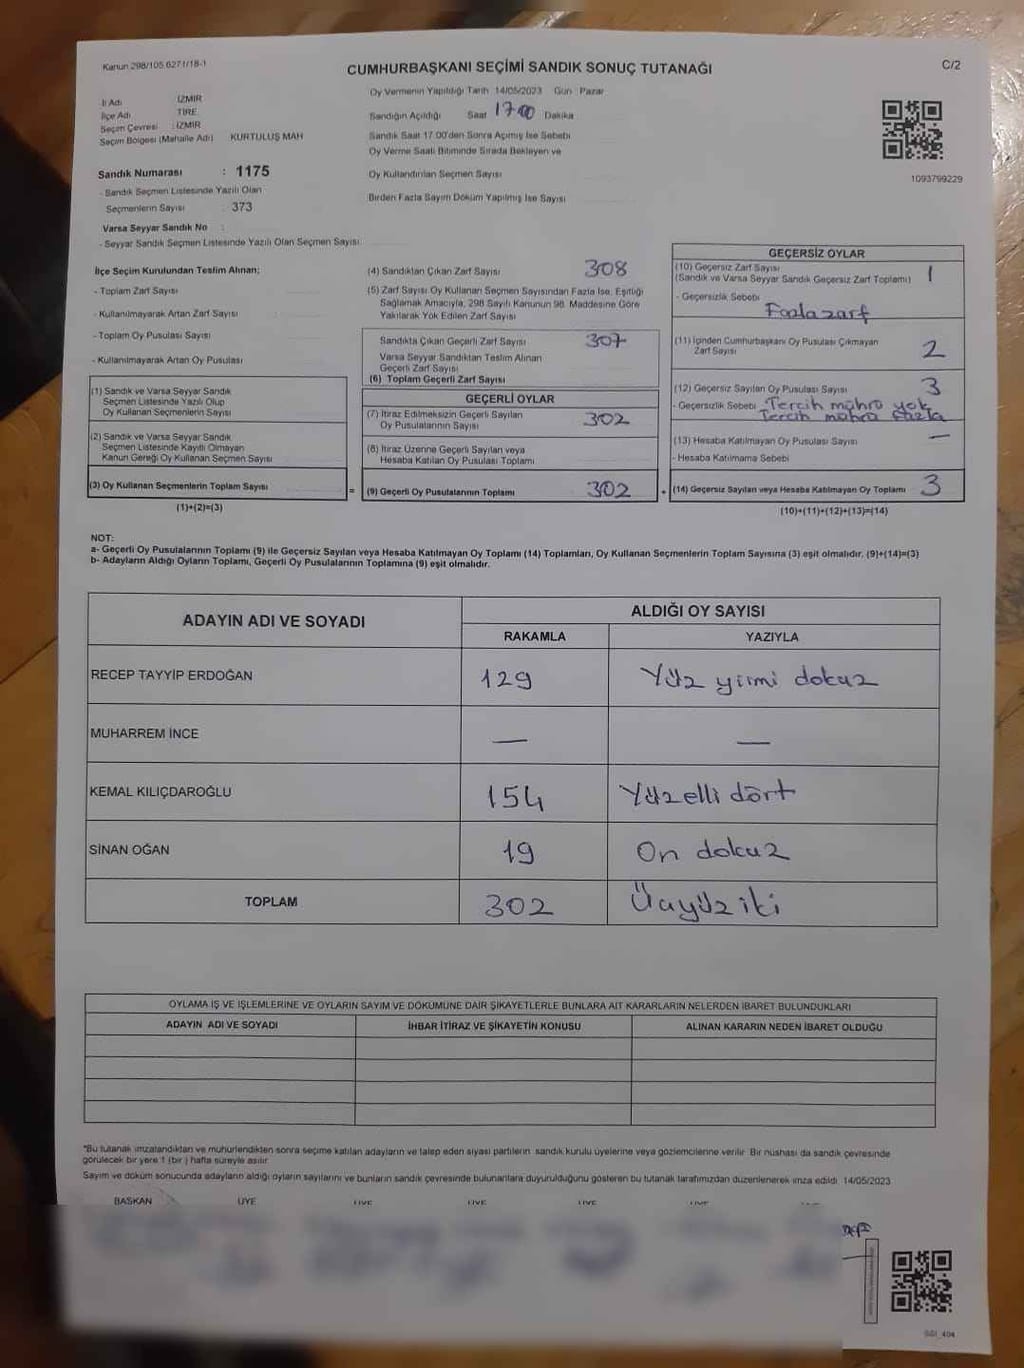 Kanun 298/105 6271/18-1
CUMHURBAŞKANI SEÇİMİ SANDIK SONUÇ TUTANAĞI
C/2
İl Adı : İZMİR
İlçe Adı : TİRE
Seçim Çevresi : İZMİR
Seçim Bölgesi (Mahalle Adı) KURTULUŞ MAH
Sandık Numarası : 1175
- Sandık Seçmen Listesinde Yazılı Olan
Seçmenlerin Sayısı : 373
Varsa Seyyar Sandık No :
- Seyyar Sandık Seçmen Listesinde Yazılı Olan Seçmen Sayısı
Oy Vermenin Yapıldığı Tarih 14/05/2023 Gün : Pazar
Sandığın Açıldığı Saat 17:00 Dakika
Sandık Saat 17.00'den Sonra Açılmış İse Sebebi
Oy Verme Saati Bitiminde Sırada Bekleyen ve
Oy Kullandırılan Seçmen Sayısı
Birden Fazla Sayım Döküm Yapılmış İse Sayısı
1093799229
İlçe Seçim Kurulundan Teslim Alınan;
- Toplam Zarf Sayısı
- Kullanılmayarak Artan Zarf Sayısı
- Toplam Oy Pusulası Sayısı
- Kullanılmayarak Artan Oy Pusulası
(1) Sandık ve Varsa Seyyar Sandık
Seçmen Listesinde Yazılı Olup
Oy Kullanan Seçmenlerin Sayısı
(2) Sandık ve Varsa Seyyar Sandık
Seçmen Listesinde Kayıtlı Olmayan
Kanun Gereği Oy Kullanan Seçmen Sayısı
(3) Oy Kullanan Seçmenlerin Toplam Sayısı =
(1)+(2)=(3)
(4) Sandıktan Çıkan Zarf Sayısı 308
(5) Zarf Sayısı Oy Kullanan Seçmen Sayısından Fazla İse, Eşitliği
Sağlamak Amacıyla, 298 Sayılı Kanunun 98. Maddesine Göre
Yakılarak Yok Edilen Zarf Sayısı
Sandıkta Çıkan Geçerli Zarf Sayısı 307
Varsa Seyyar Sandıktan Teslim Alınan
Geçerli Zarf Sayısı
(6) Toplam Geçerli Zarf Sayısı
GEÇERLİ OYLAR
(7) İtiraz Edilmeksizin Geçerli Sayılan
Oy Pusulalarının Sayısı 302
(8) İtiraz Üzerine Geçerli Sayılan veya
Hesaba Katılan Oy Pusulası Toplamı
(9) Geçerli Oy Pusulalarının Toplamı 302 +
GEÇERSİZ OYLAR
(10) Geçersiz Zarf Sayısı
(Sandık ve Varsa Seyyar Sandık Geçersiz Zarf Toplamı) 1
- Geçersizlik Sebebi
Fazla zarf
(11) İçinden Cumhurbaşkanı Oy Pusulası Çıkmayan
Zarf Sayısı 2
(12) Geçersiz Sayılan Oy Pusulası Sayısı 3
- Geçersizlik Sebebi Tercih mührü yok
Tercih mührü fazla
(13) Hesaba Katılmayan Oy Pusulası Sayısı —
- Hesaba Katılmama Sebebi
(14) Geçersiz Sayılan veya Hesaba Katılmayan Oy Toplamı 3
(10)+(11)+(12)+(13)=(14)
NOT:
a- Geçerli Oy Pusulalarının Toplamı (9) ile Geçersiz Sayılan veya Hesaba Katılmayan Oy Toplamı (14) Toplamları, Oy Kullanan Seçmenlerin Toplam Sayısına (3) eşit olmalıdır. (9)+(14)=(3)
b- Adayların Aldığı Oyların Toplamı, Geçerli Oy Pusulalarının Toplamına (9) eşit olmalıdır.
ADAYIN ADI VE SOYADI
ALDIĞI OY SAYISI
RAKAMLA YAZIYLA
RECEP TAYYİP ERDOĞAN 129 Yüz yirmi dokuz
MUHARREM İNCE — —
KEMAL KILIÇDAROĞLU 154 Yüzelli dört
SİNAN OĞAN 19 On dokuz
TOPLAM 302 Üçyüz iki
OYLAMA İŞ VE İŞLEMLERİNE VE OYLARIN SAYIM VE DÖKÜMÜNE DAİR ŞİKAYETLERLE BUNLARA AİT KARARLARIN NELERDEN İBARET BULUNDUKLARI
ADAYIN ADI VE SOYADI İHBAR İTİRAZ VE ŞİKAYETİN KONUSU ALINAN KARARIN NEDEN İBARET OLDUĞU
*Bu tutanak imzalandıktan ve mühürlendikten sonra seçime katılan adayların ve talep eden siyasi partilerin sandık kurulu üyelerine veya gözlemcilerine verilir. Bir nüshası da sandık çevresinde
görülecek bir yere 1 (bir) hafta süreyle asılır
Sayım ve döküm sonucunda adayların aldığı oyların sayılarını ve bunların sandık çevresinde bulunanlara duyurulduğunu gösteren bu tutanak tarafımızdan düzenlenerek imza edildi. 14/05/2023
BAŞKAN ÜYE ÜYE ÜYE ÜYE